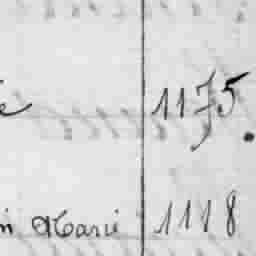 e 1175.
n Marie 1118